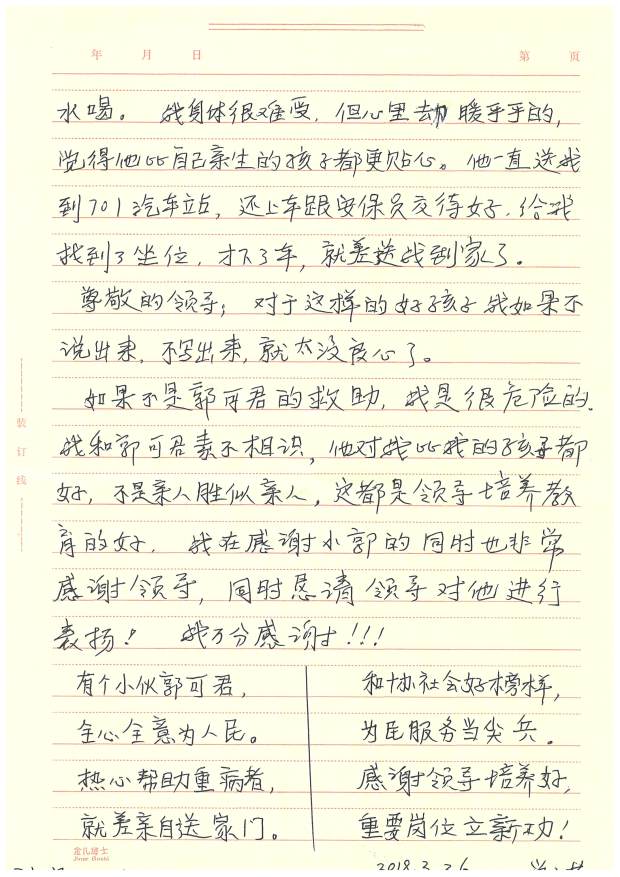 年 月 日
第 页
水喝。我身体很难受，但心里却暖乎乎的，
觉得他比自己亲生的孩子都更贴心。他一直送我
到701汽车站，还上车跟安保员交待好，给我
找到了坐位，才下了车，就差送我到家了。
尊敬的领导：对于这样的好孩子我如果不
说出来，不写出来，就太没良心了。
如果不是郭可君的救助，我是很危险的。
我和郭可君素不相识，他对我比我的孩子都
好，不是亲人胜似亲人，这都是领导培养教
育的好。我在感谢小郭的同时也非常
感谢领导，同时恳请领导对他进行
表扬！我万分感谢！！！
装订线
有个小伙郭可君，
全心全意为人民。
热心帮助重病者，
就差亲自送家门。
和协社会好榜样，
为民服务当尖兵。
感谢领导培养好，
重要岗位立新功！
金氏博士
2018.3.26